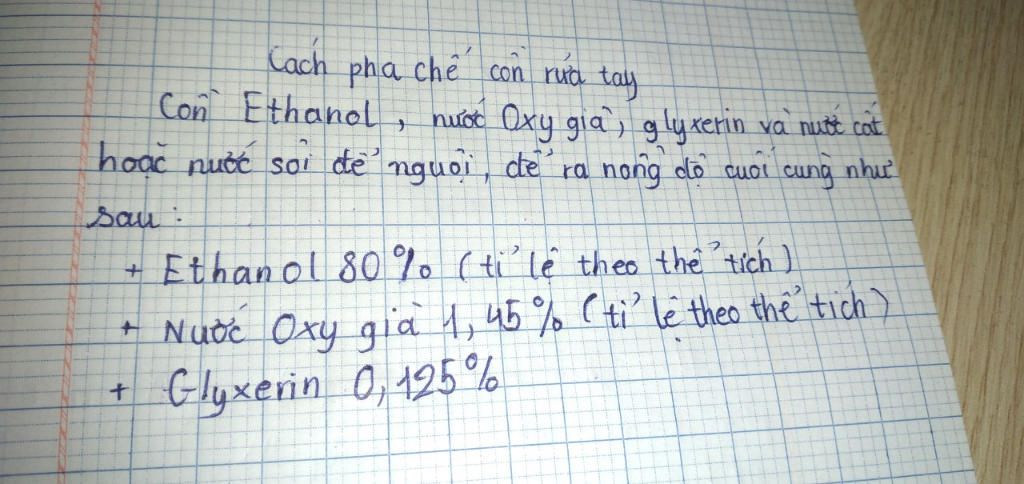 Cách pha chế cồn rửa tay
Cồn Ethanol, nước Oxy già, glyxerin và nước cất
hoặc nước sôi để nguội, để ra nồng độ cuối cùng như
sau:
+ Ethanol 80% (tỉ lệ theo thể tích)
+ Nước Oxy già 1,45% (tỉ lệ theo thể tích)
+ Glyxerin 0,125%